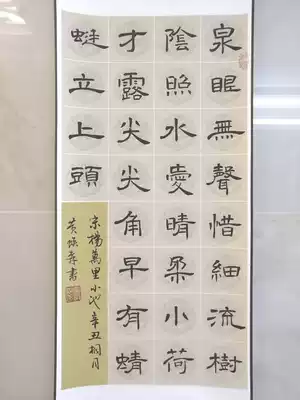 泉眼無聲惜細流樹
陰照水愛晴柔小荷
才露尖尖角早有蜻
蜓立上頭
宋楊萬里小池辛丑桐月
黃森書